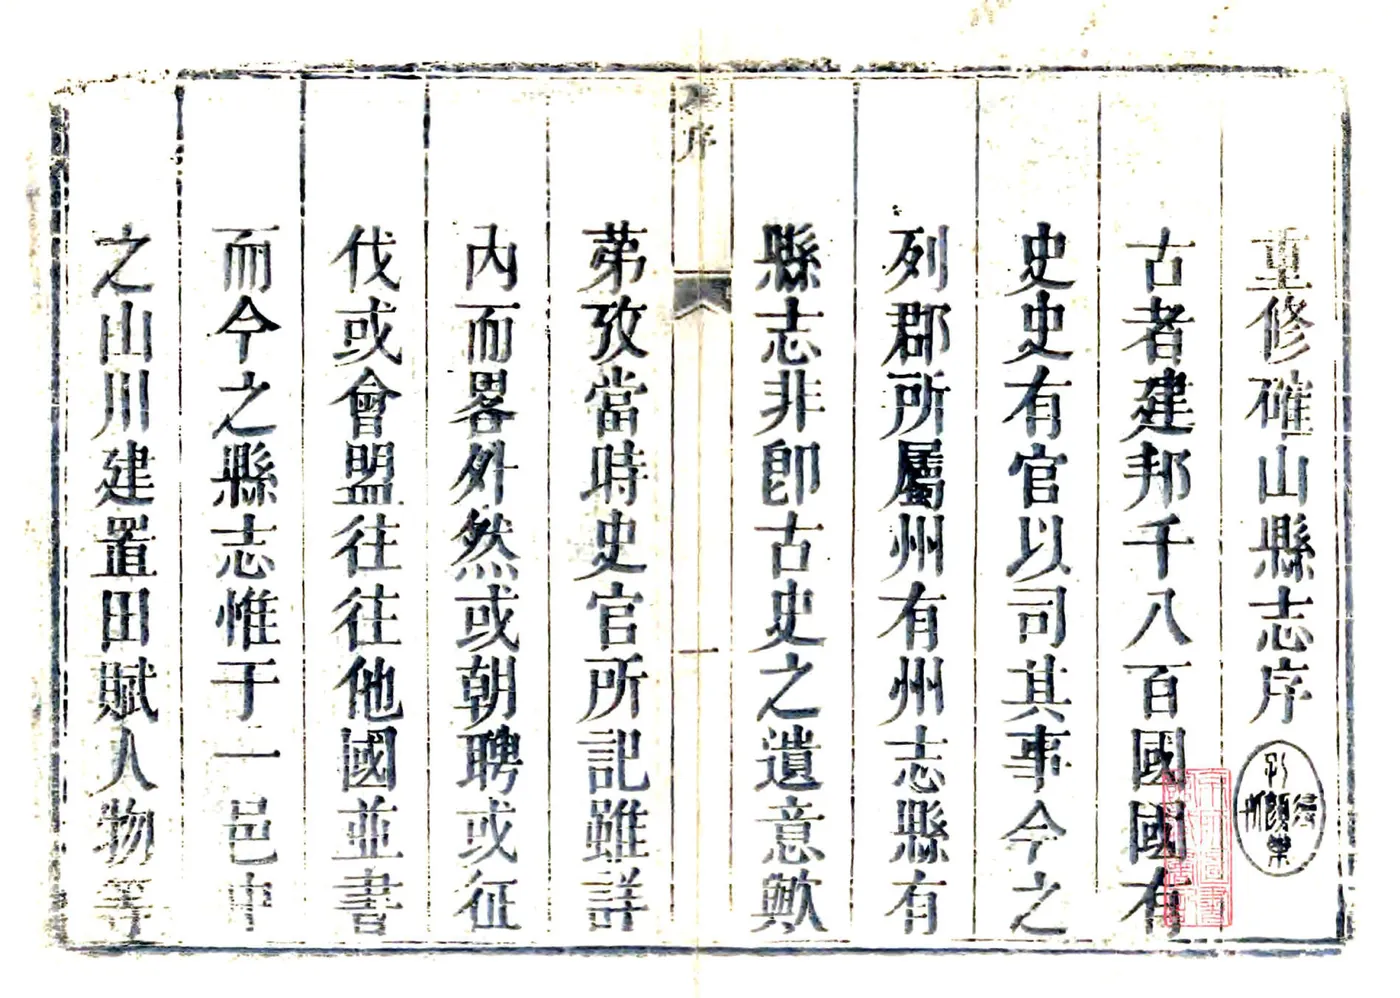 重修確山縣志序
古者建邦千八百國國有
史史有官以司其事今之
列郡所屬州有州志縣有
縣志非卽古史之遺意歟
序
一
苐攷當時史官所記雖詳
內而畧外然或朝聘或征
伐或會盟往往他國並書
而今之縣志惟于一邑中
之山川建置田賦人物等